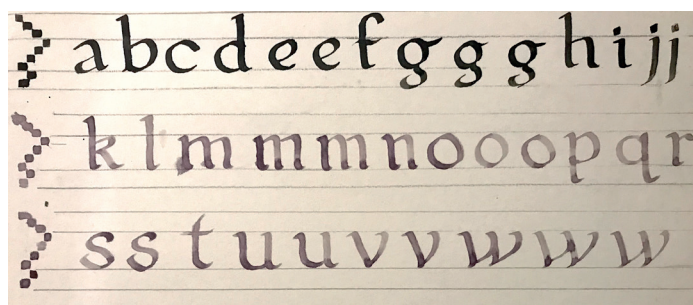 a b c d e e f g g g h i j j
k l m m m n o o o p q r
s s t u u v v w w w